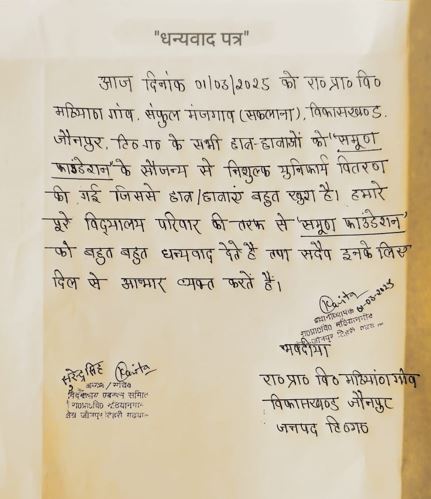 "धन्यवाद पत्र"
आज दिनांक 01/03/2025 को रा० प्रा० वि०
मठियाण गांव, संकुल मंजगाव (सकलाना), विकासखण्ड,
जौनपुर, टि० ग० के सभी छात्र-छात्राओं को "समूण
फाउंडेशन" के सौजन्य से निशुल्क युनिफार्म वितरण
की गई जिससे छात्र/छात्राएं बहुत खुश है। हमारे
पूरे विद्यालय परिवार की तरफ से "समूण फाउंडेशन"
को बहुत बहुत धन्यवाद देते है तथा सदैव इनके लिए
दिल से आभार व्यक्त करतें हैं।
Kavita
प्रधानाध्यापक 01-03-2025
भवदीया
रा० प्रा० वि० मठियांण गांव
विकासखण्ड जौनपुर
जनपद टि० ग०
सुरेन्द्र सिंह Kavita
अध्यक्ष / सचिव
विद्यालय प्रबन्धन समिति